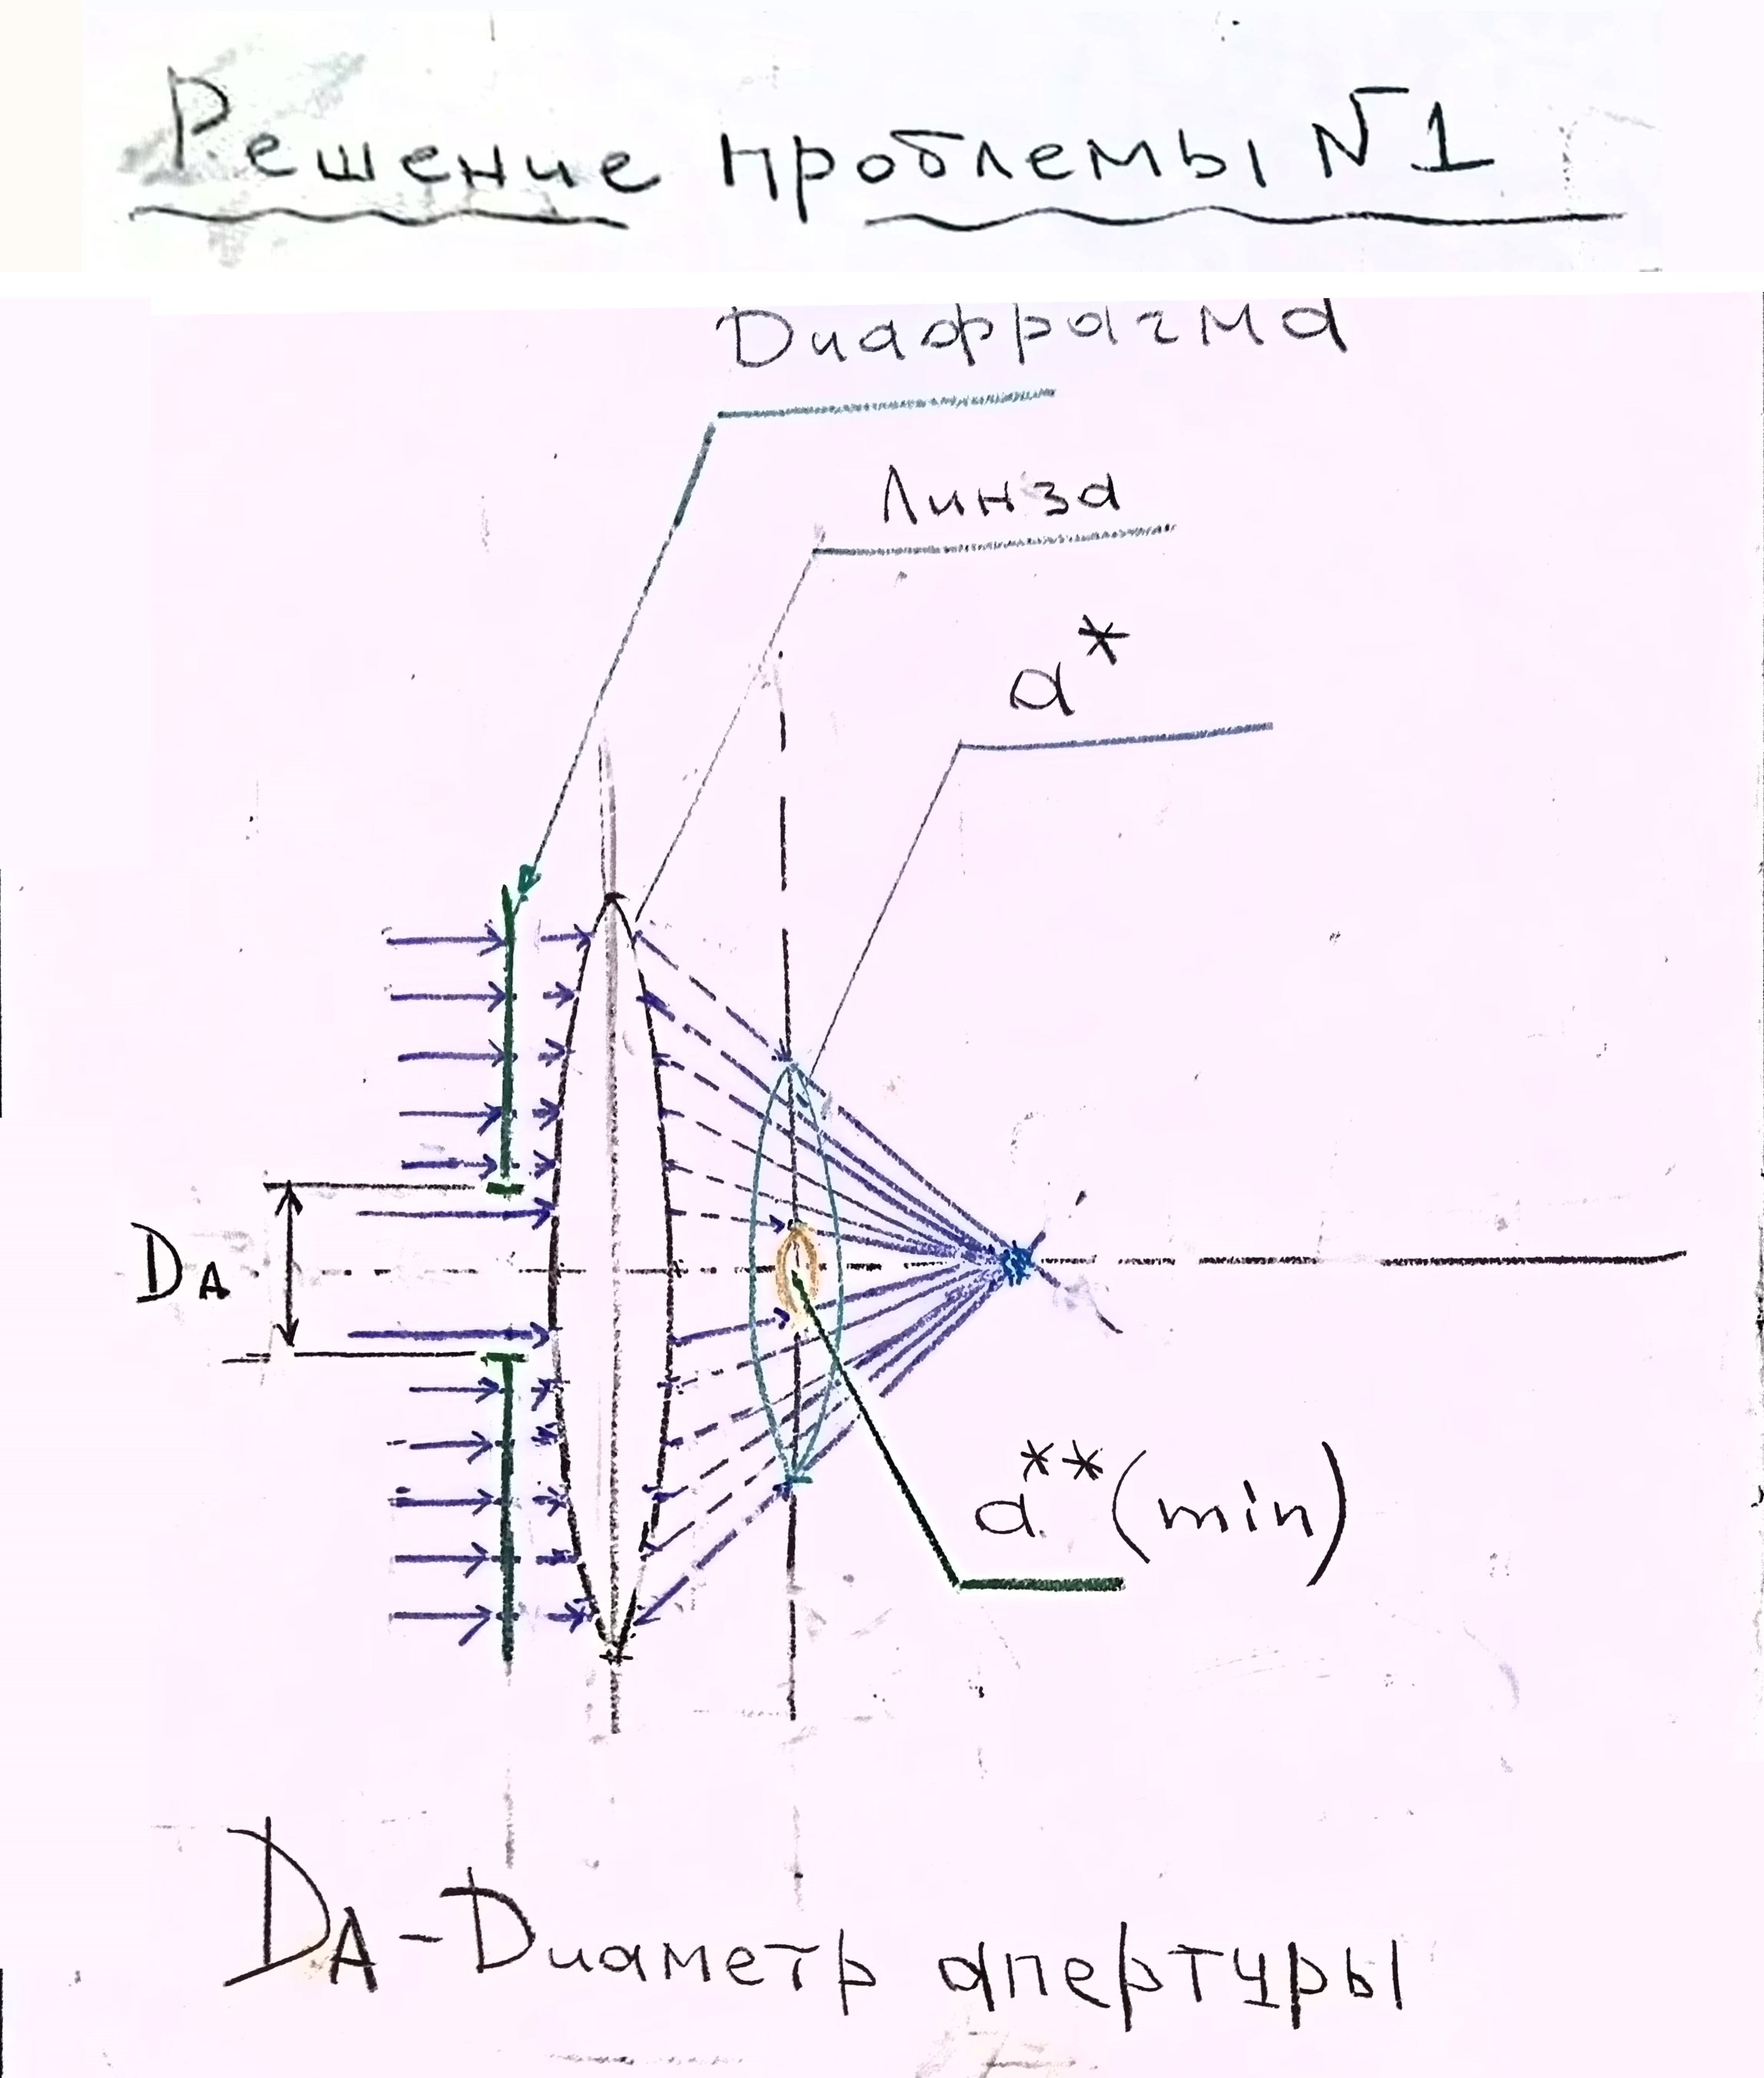 Решение проблемы N1
Диафрагма
Линза
a*
DA
a**(min)
DA-Диаметр апертуры